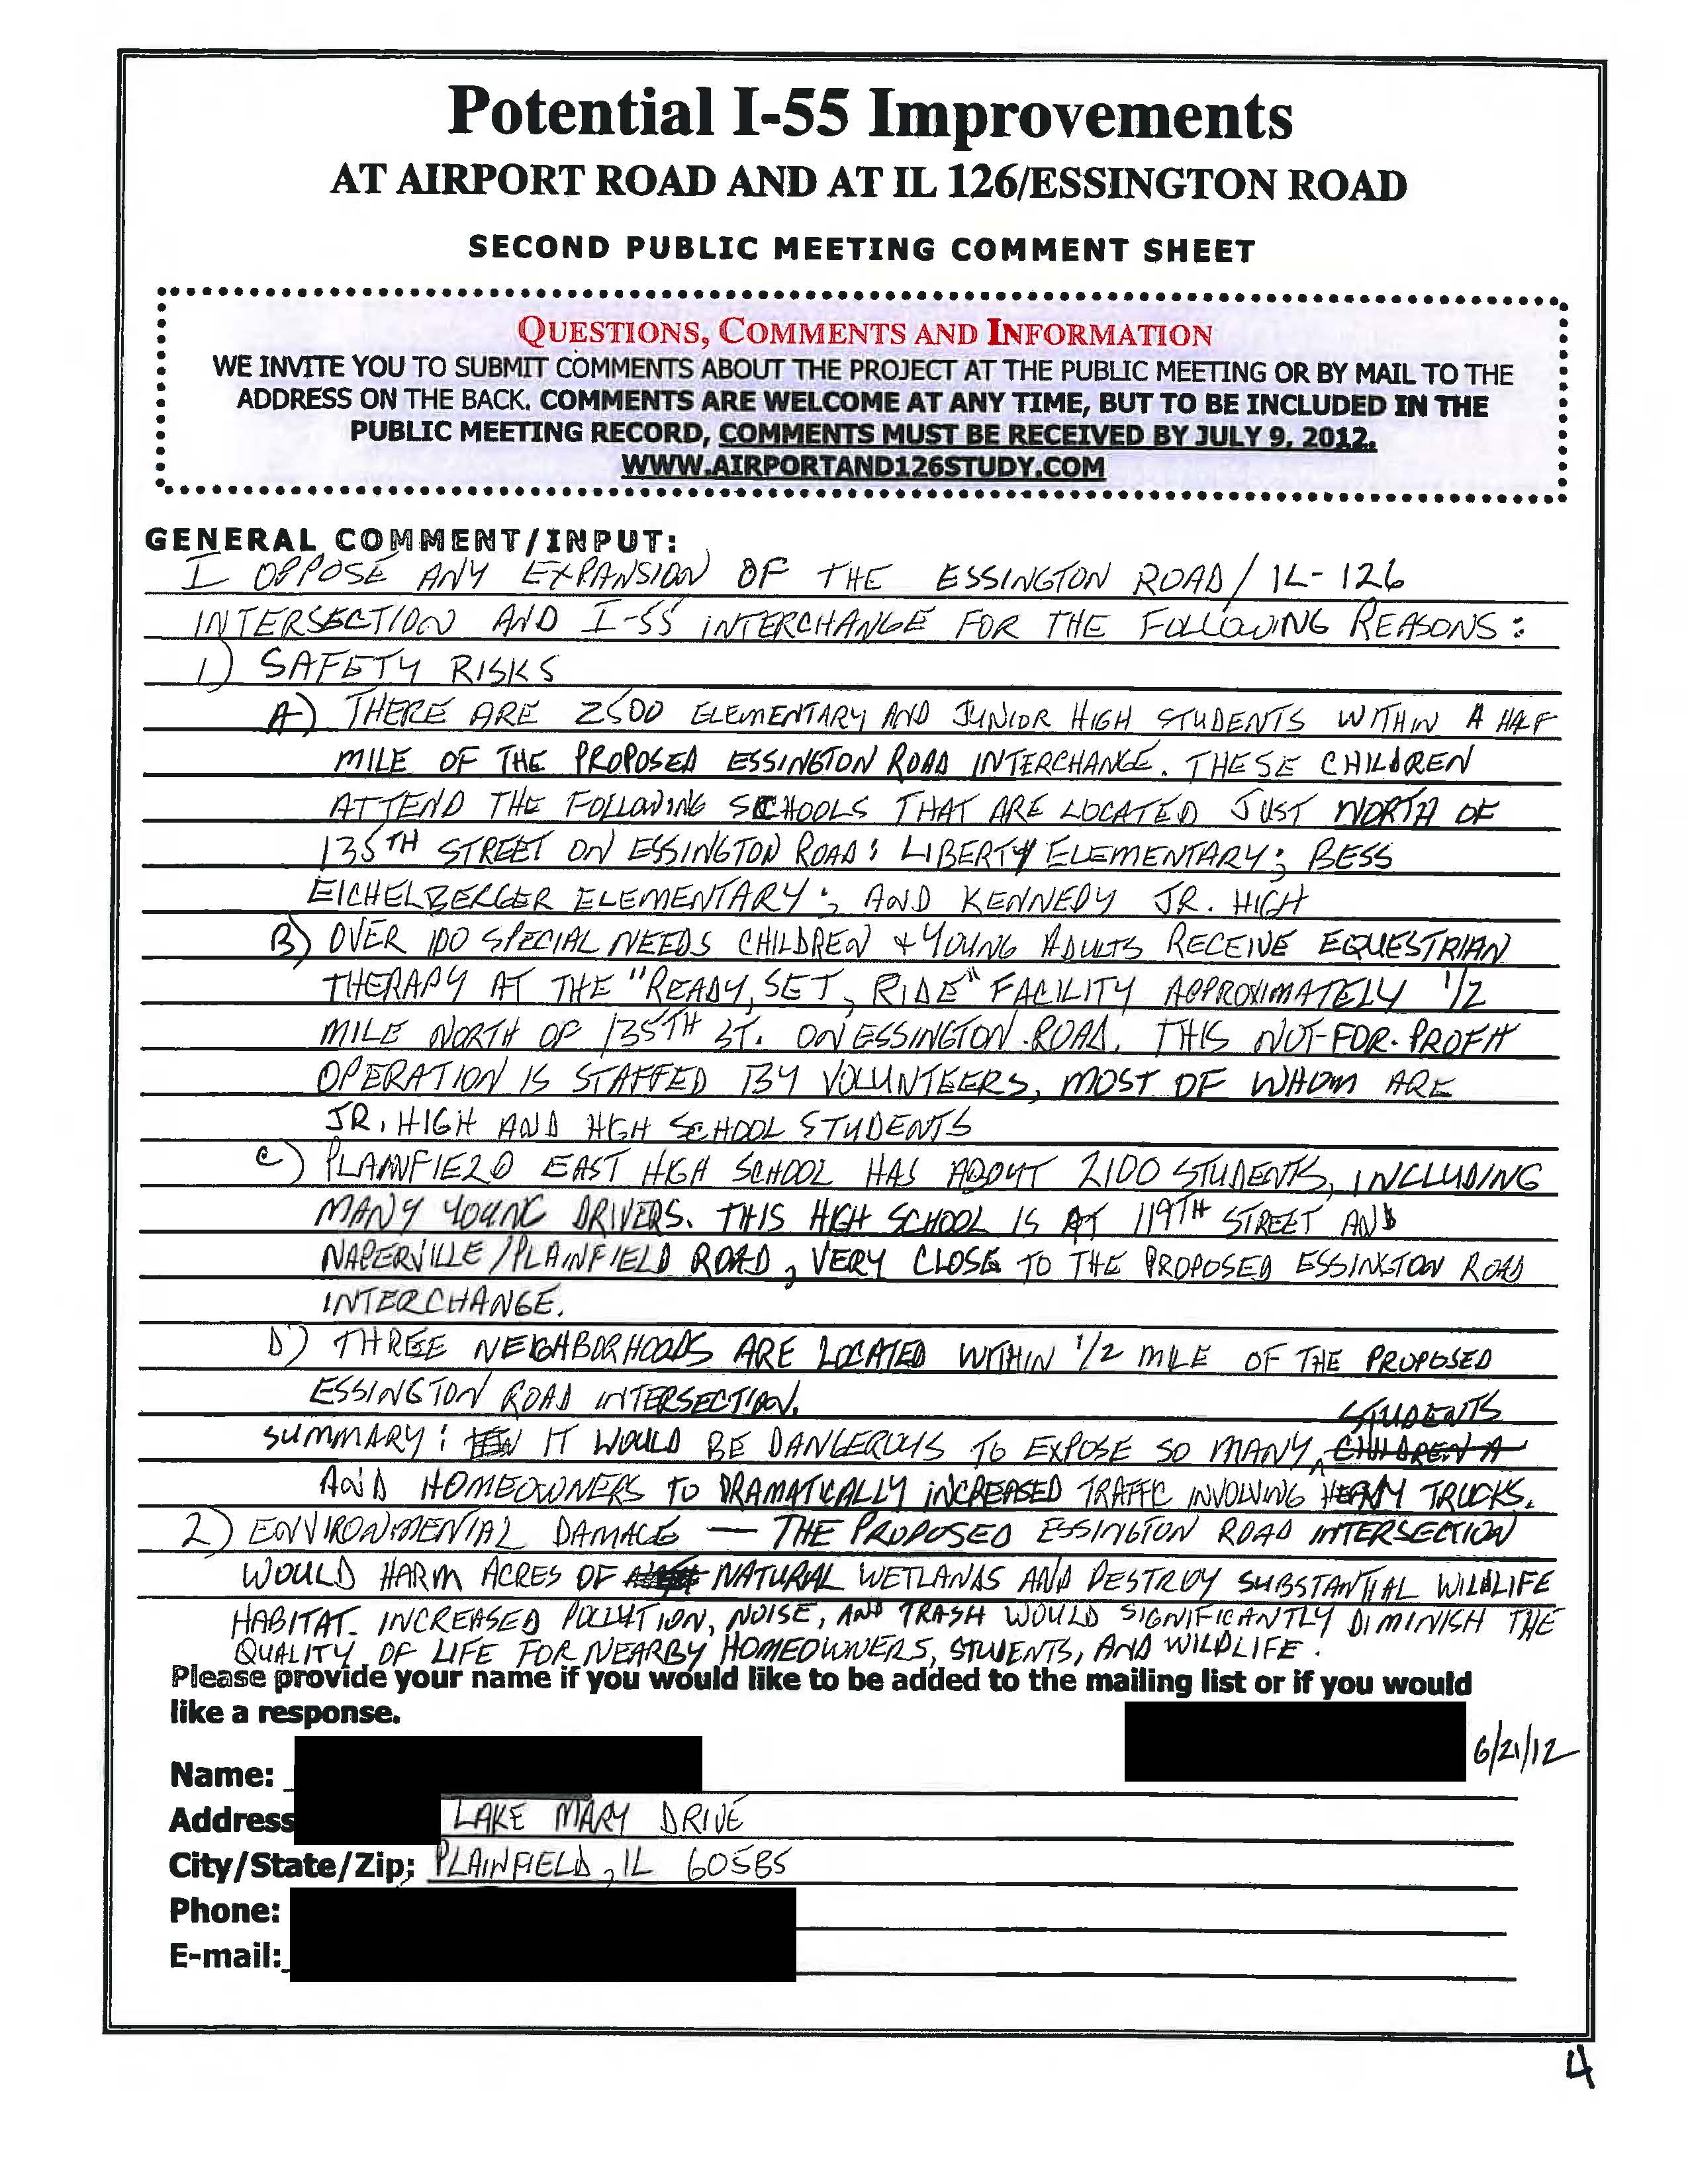 Potential I-55 Improvements
AT AIRPORT ROAD AND AT IL 126/ESSINGTON ROAD
SECOND PUBLIC MEETING COMMENT SHEET
QUESTIONS, COMMENTS AND INFORMATION
WE INVITE YOU TO SUBMIT COMMENTS ABOUT THE PROJECT AT THE PUBLIC MEETING OR BY MAIL TO THE
ADDRESS ON THE BACK. COMMENTS ARE WELCOME AT ANY TIME, BUT TO BE INCLUDED IN THE
PUBLIC MEETING RECORD, COMMENTS MUST BE RECEIVED BY JULY 9, 2012.
WWW.AIRPORTAND126STUDY.COM
GENERAL COMMENT/INPUT:
I OPPOSE ANY EXPANSION OF THE ESSINGTON ROAD/IL-126
INTERSECTION AND I-55 INTERCHANGE FOR THE FOLLOWING REASONS:
1) SAFETY RISKS
A) THERE ARE 2500 ELEMENTARY AND JUNIOR HIGH STUDENTS WITHIN A HALF
MILE OF THE PROPOSED ESSINGTON ROAD INTERCHANGE. THESE CHILDREN
ATTEND THE FOLLOWING SCHOOLS THAT ARE LOCATED JUST NORTH OF
135TH STREET ON ESSINGTON ROAD: LIBERTY ELEMENTARY; BESS
EICHELBERGER ELEMENTARY; AND KENNEDY JR. HIGH
B) OVER 100 SPECIAL NEEDS CHILDREN + YOUNG ADULTS RECEIVE EQUESTRIAN
THERAPY AT THE "READY, SET, RIDE" FACILITY APPROXIMATELY 1/2
MILE NORTH OF 135TH ST. ON ESSINGTON ROAD. THIS NOT-FOR-PROFIT
OPERATION IS STAFFED BY VOLUNTEERS, MOST OF WHOM ARE
JR. HIGH AND HIGH SCHOOL STUDENTS
C) PLAINFIELD EAST HIGH SCHOOL HAS ABOUT 2100 STUDENTS, INCLUDING
MANY YOUNG DRIVERS. THIS HIGH SCHOOL IS AT 119TH STREET AND
NAPERVILLE/PLAINFIELD ROAD, VERY CLOSE TO THE PROPOSED ESSINGTON ROAD
INTERCHANGE.
D) THREE NEIGHBORHOODS ARE LOCATED WITHIN 1/2 MILE OF THE PROPOSED
ESSINGTON ROAD INTERSECTION.
STUDENTS
SUMMARY: IT WOULD BE DANGEROUS TO EXPOSE SO MANY CHILDREN A
AND HOMEOWNERS TO DRAMATICALLY INCREASED TRAFFIC INVOLVING HEAVY TRUCKS.
2) ENVIRONMENTAL DAMAGE — THE PROPOSED ESSINGTON ROAD INTERSECTION
WOULD HARM ACRES OF NATURAL WETLANDS AND DESTROY SUBSTANTIAL WILDLIFE
HABITAT. INCREASED POLLUTION, NOISE, AND TRASH WOULD SIGNIFICANTLY DIMINISH THE
QUALITY OF LIFE FOR NEARBY HOMEOWNERS, STUDENTS, AND WILDLIFE.
Please provide your name if you would like to be added to the mailing list or if you would
like a response.
6/21/12
Name:
Address LAKE MARY DRIVE
City/State/Zip: PLAINFIELD, IL 60585
Phone:
E-mail:
4